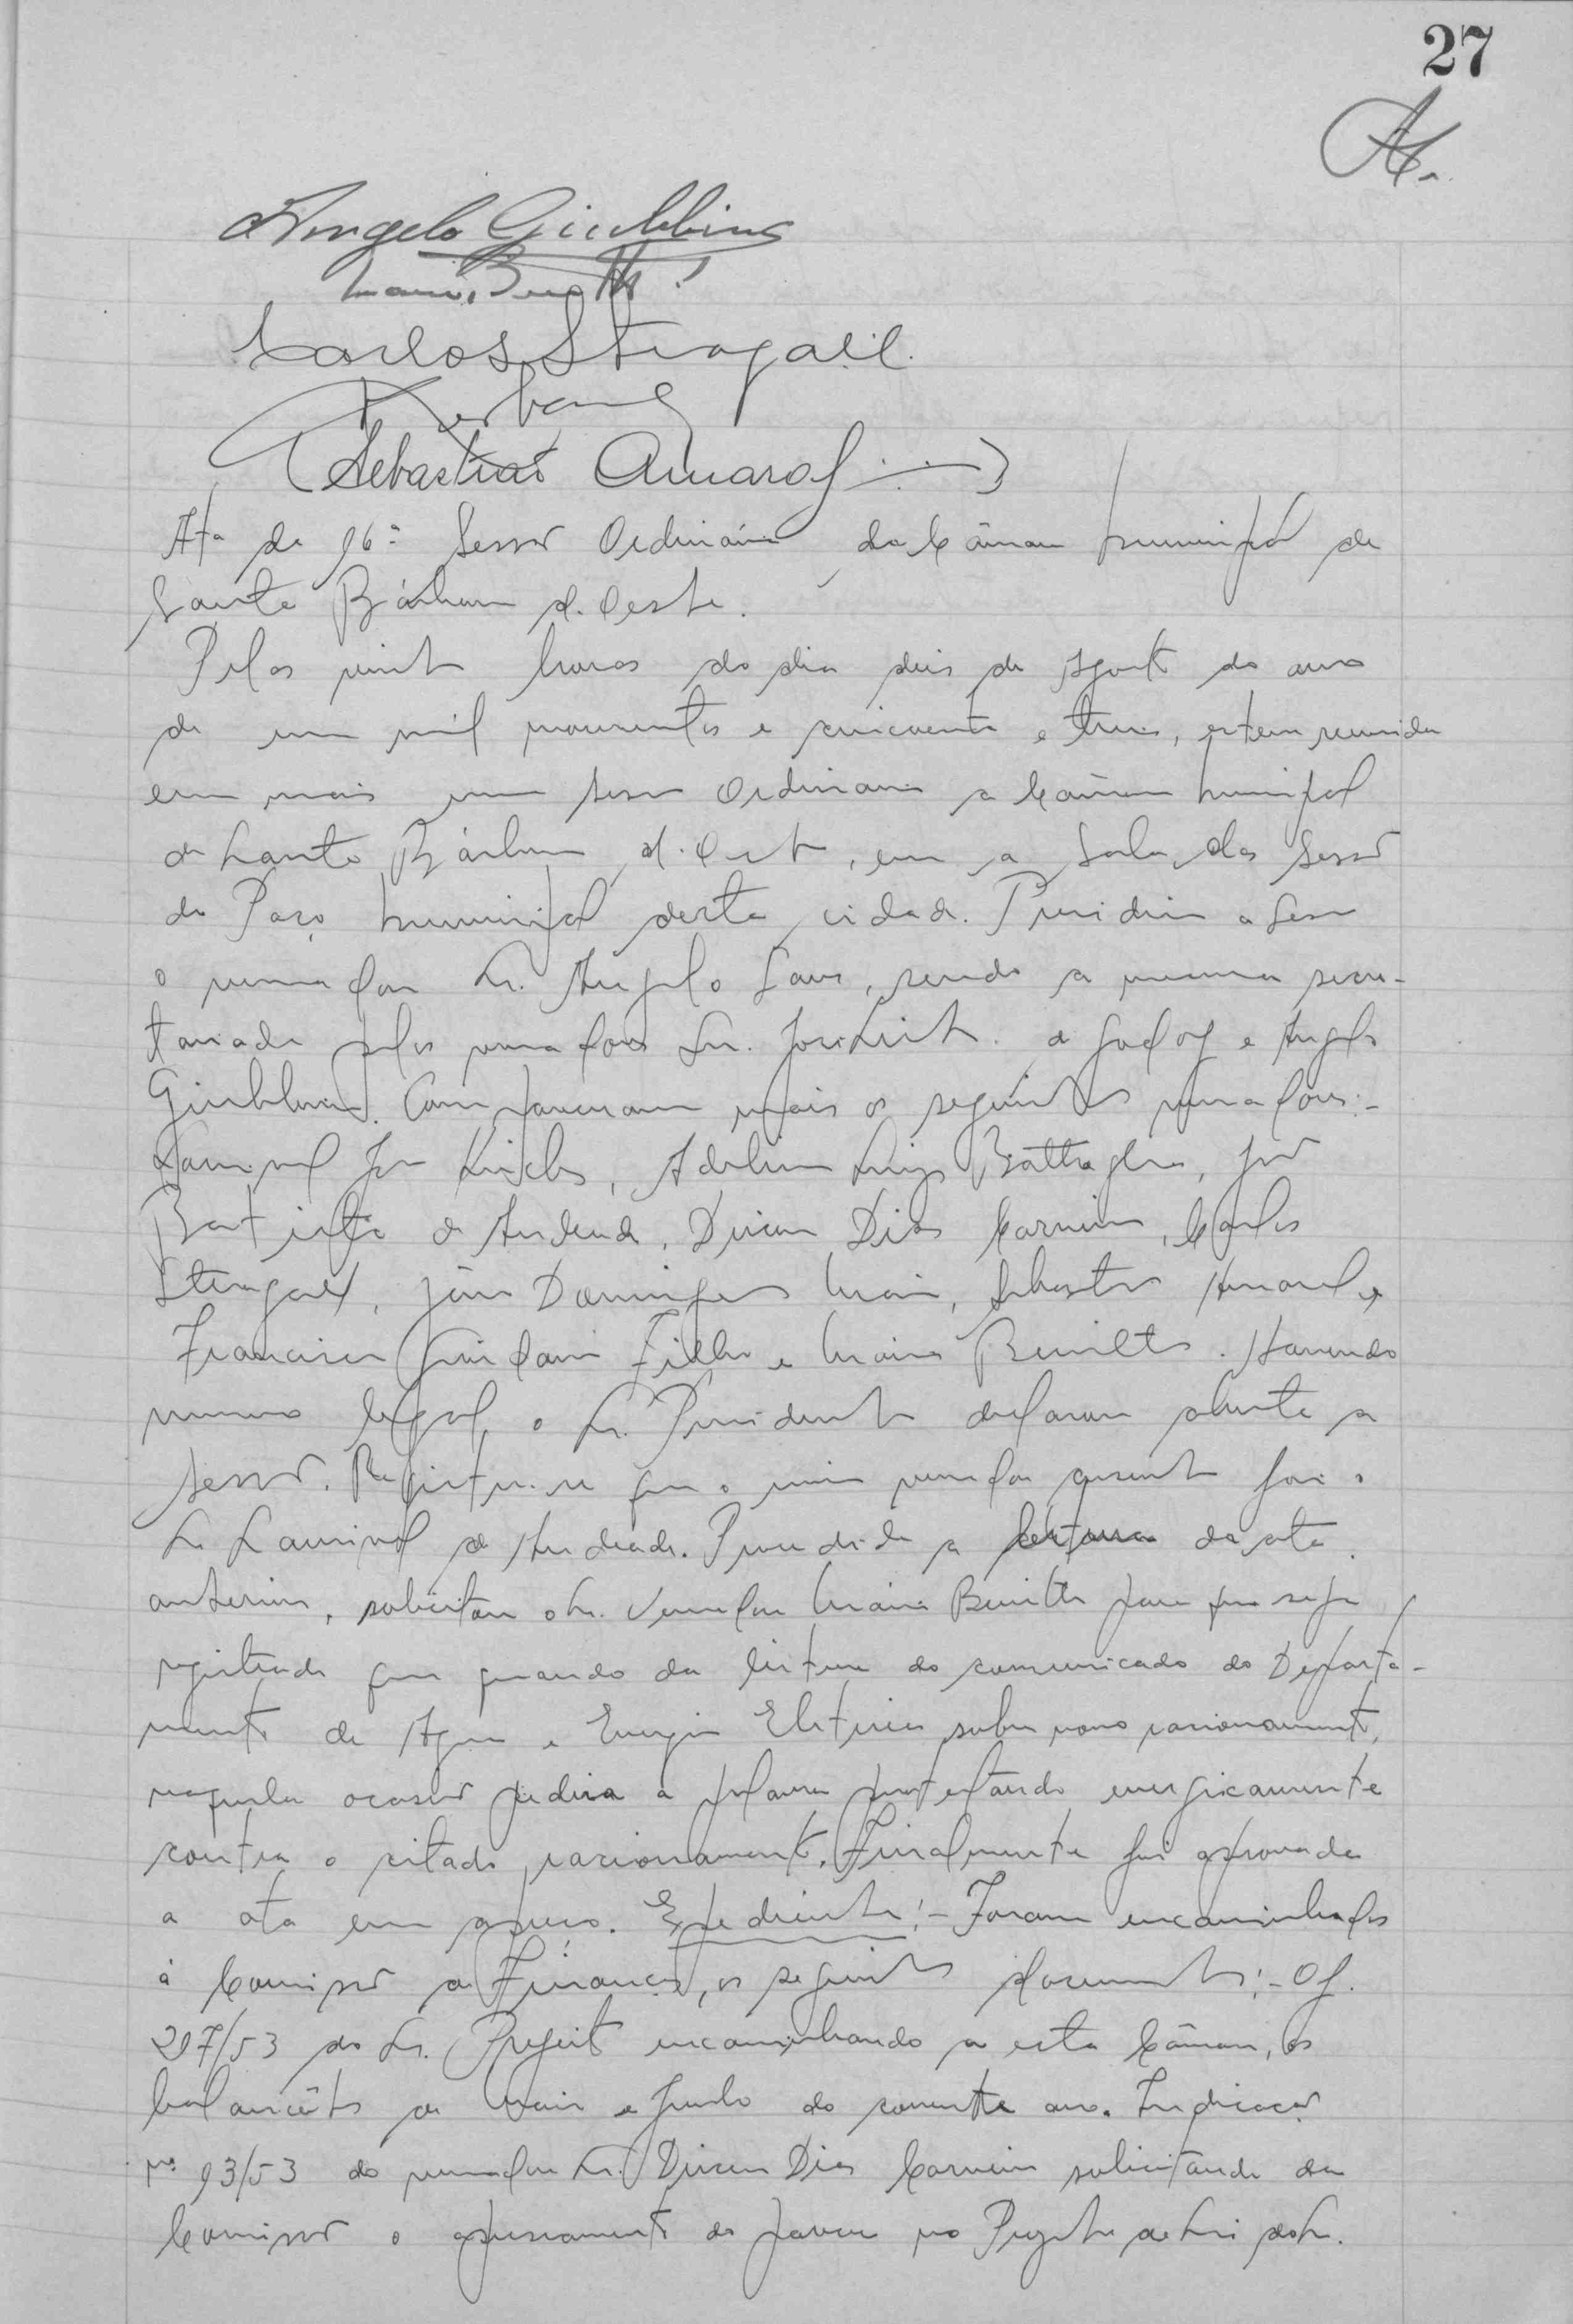 27
Angelo Giubbina
Carlos Steagall.
Sebastião Amaral
Ata da 96ª Sessão Ordinária da Câmara Municipal de
Santa Bárbara d'Oeste.
Pelas vinte horas do dia dois de Agosto do ano
de um mil novecentos e cincoenta e tres, esteve reunida
em mais uma sessão Ordinaria a Câmara Municipal
de Santa Bárbara d'Oeste, em a Sala das Sessões
do Paço Municipal desta cidade. Presidiu a Sessão
o vereador Sr. Angelo Sans, sendo a mesma secre-
tariada pelos vereadores Srs. José Leite de Godoy e Angelo
Giubbina. Compareceram mais os seguintes vereadores:-
Adelino Luiz Battaglia, José
Batista de Andrade, Dirceu Dias Carneiro, Carlos
Steagall, João Domingues Maia, Sebastião Amaral e
Francisco Filho e Maria Benitto. Havendo
numero legal, o Sr. Presidente declarou aberta a
sessão. Registra-se que o unico vereador ausente foi o
Sr. Laurival de Andrade. Procedida a leitura da ata
anterior, solicitou o Sr. Vereador Benitto para que seja
registrado que quando da leitura do comunicado do Departa-
mento de Agua e Energia Eletrica sobre novo racionamento,
naquela ocasião pedira a palavra protestando energicamente
contra o citado racionamento. Finalmente foi aprovada
a ata em apreço. Expediente:- Foram encaminhados
á Comissão de Finanças, os seguintes documentos:- Of.
297/53 do Sr. Prefeito encaminhando a esta Câmara, os
balancêtes de Maio e Junho do corrente ano. Indicação
nº 93/53 do vereador Sr. Dirceu Dias Carneiro solicitando da
Comissão o apressamento do parecer no Projeto de Lei do Sr.